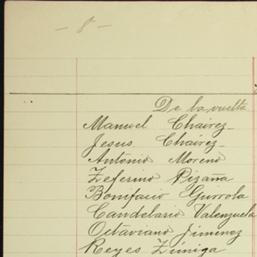 - 8 -
De la vuelta
Manuel Cháirez-
Jesus Cháirez-
Antonio Moreno
Zeferino Pizaña
Bonifacio Gurrola
Candelario Valenzuela
Octaviano Jimenez
Reyes Zúniga